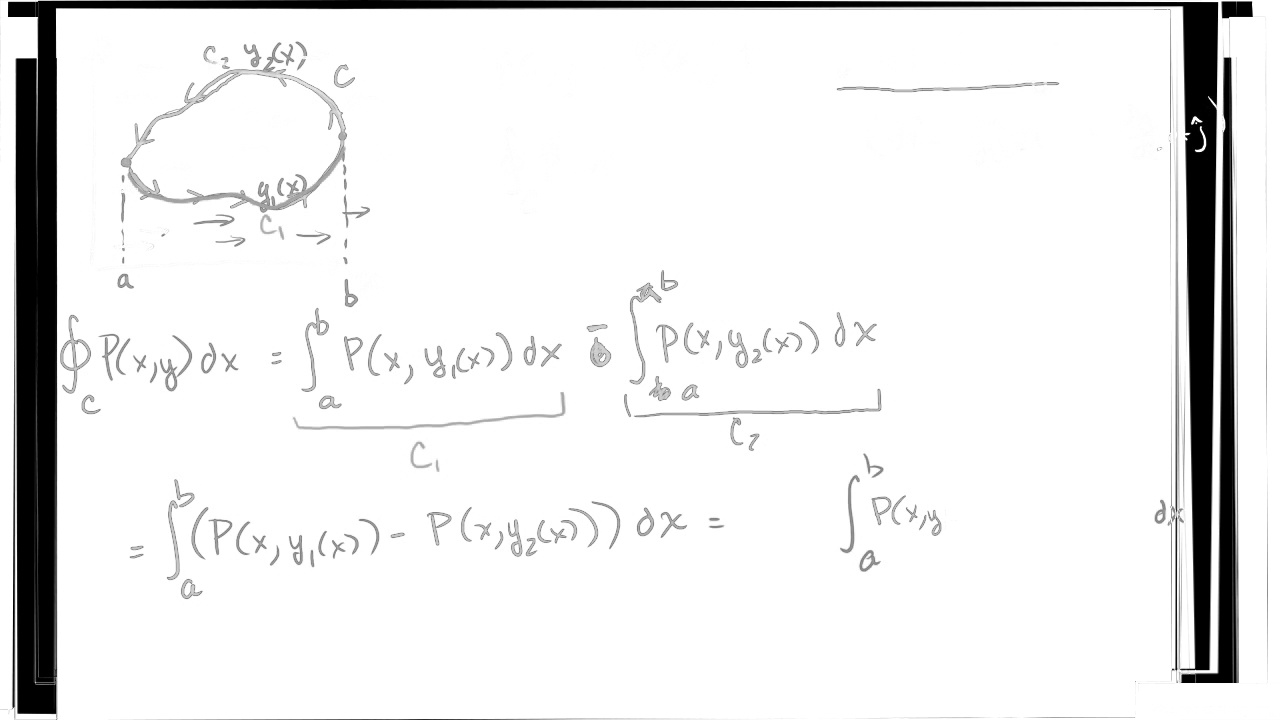 C₂ y₂(x) C
+ ĵ )
y₁(x)
C₁
a b
∮_C P(x,y) dx = ∫_a^b P(x, y₁(x)) dx - ∫_a^b P(x, y₂(x)) dx
C₁ C₂
= ∫_a^b (P(x, y₁(x)) - P(x, y₂(x))) dx = ∫_a^b P(x,y dx